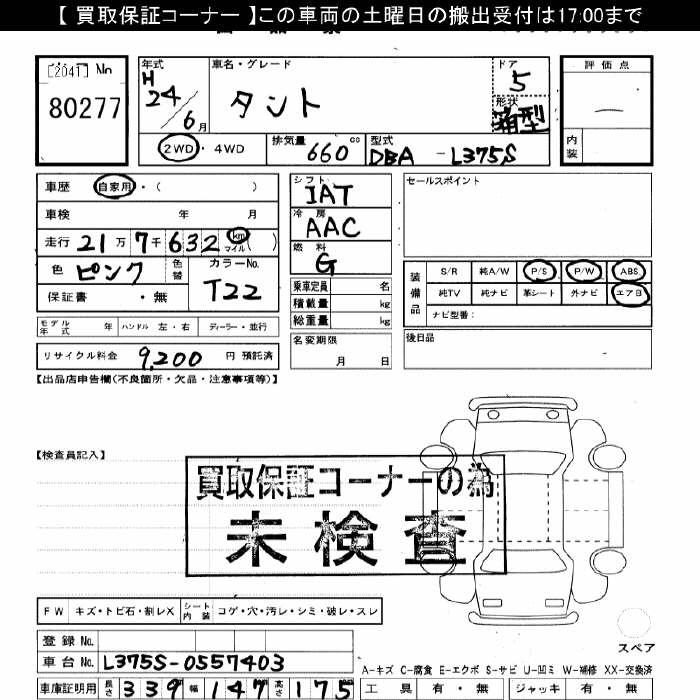 【 買取保証コーナー 】この車両の土曜日の搬出受付は17:00まで
[2041] No 80277
年式 H24/6月
車名・グレード タント
ドア 5
形状 箱型
評価点 —
内装
2WD ・ 4WD
排気量 660 cc
型式 DBA - L375S
車歴 自家用・( )
車検 年 月
走行 21万7千632 km マイル ( )
色 ピンク 色替 カラーNo. T22
保証書 ・無
モデル年式 年 ハンドル 左・右 ディーラー・並行
リサイクル料金 9,200 円 預託済
シフト IAT
冷房 AAC
燃料 G
乗車定員 名
積載量 kg
総重量 kg
名変期限 月 日
セールスポイント
装備品 S/R 純A/W P/S P/W ABS
純TV 純ナビ 革シート 外ナビ エアB
ナビ型番:
後日品
【出品店申告欄(不良箇所・欠品・注意事項等)】
【検査員記入】
買取保証コーナーの為
未検査
FW キズ・トビ石・割レX シート内装 コゲ・穴・汚レ・シミ・破レ・スレ
登録 No.
車台 No. L375S-0557403
車庫証明用 長さ 339 幅 147 高さ 175
スペア
A-キズ C-腐食 E-エクボ S-サビ U-凹ミ W-補修 XX-交換済
工具 有・無 ジャッキ 有・無